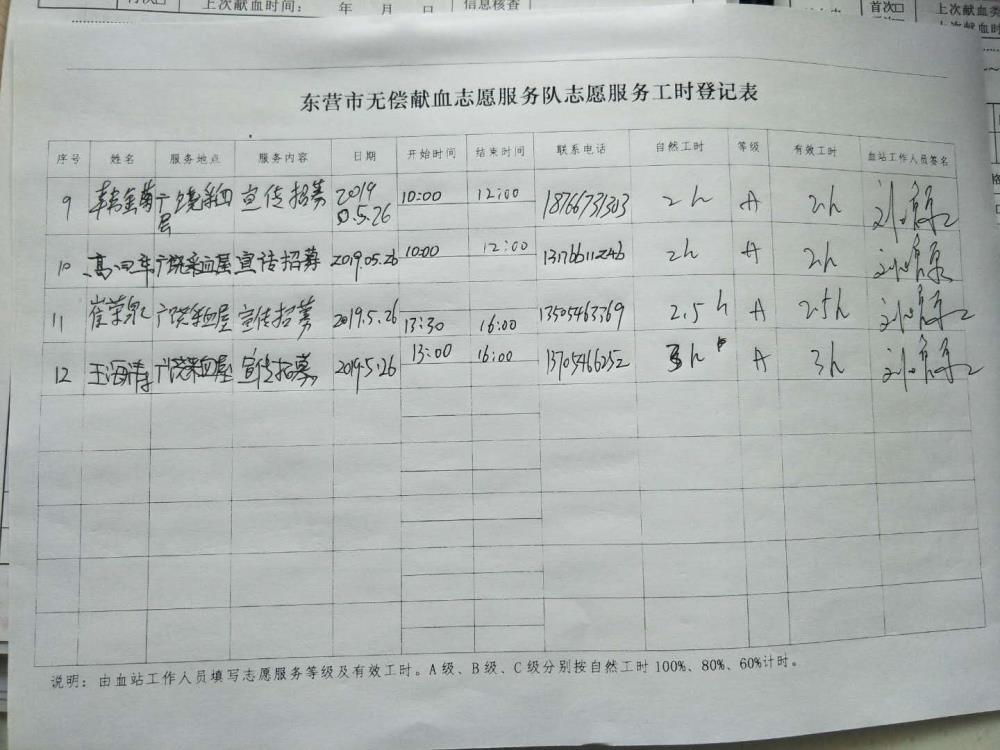 上次献血时间： 年 月 日 信息核查
首次□ 上次献血
东营市无偿献血志愿服务队志愿服务工时登记表
序号 姓名 服务地点 服务内容 日期 开始时间 结束时间 联系电话 自然工时 等级 有效工时 血站工作人员签名
9 韩金萍 广饶采血屋 宣传招募 2019.5.26 10:00 12:00 18766731303 2h A 2h
10 广饶采血屋 宣传招募 2019.05.26 10:00 12:00 13176611246 2h A 2h
11 崔荣泉 广饶采血屋 宣传招募 2019.5.26 13:30 16:00 13505463369 2.5h A 2.5h
12 王海涛 广饶采血屋 宣传招募 2019.5.26 13:00 16:00 13705466252 3h A 3h
说明：由血站工作人员填写志愿服务等级及有效工时。A级、B级、C级分别按自然工时100%、80%、60%计时。